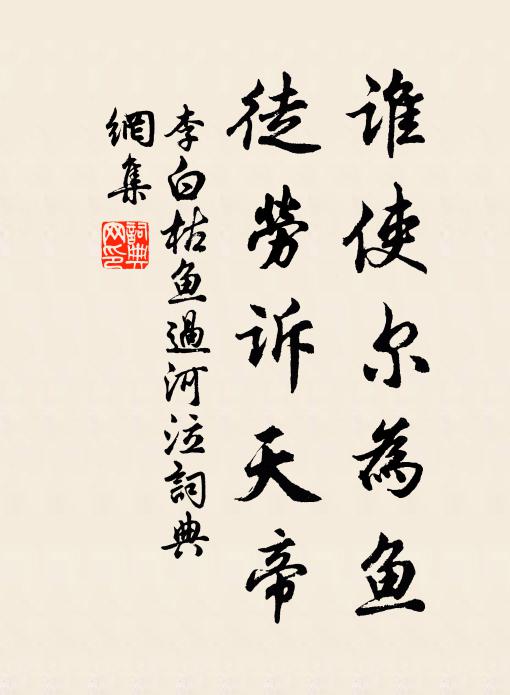 谁使尔為鱼
徒劳诉天帝
李白枯鱼過河泣詞典
網集
詞典
网印